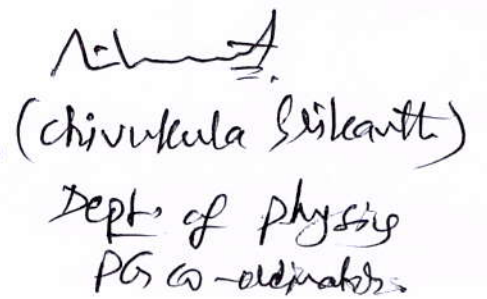 (Chivukula Srikanth)
Dept. of physics
PG co-ordinator.